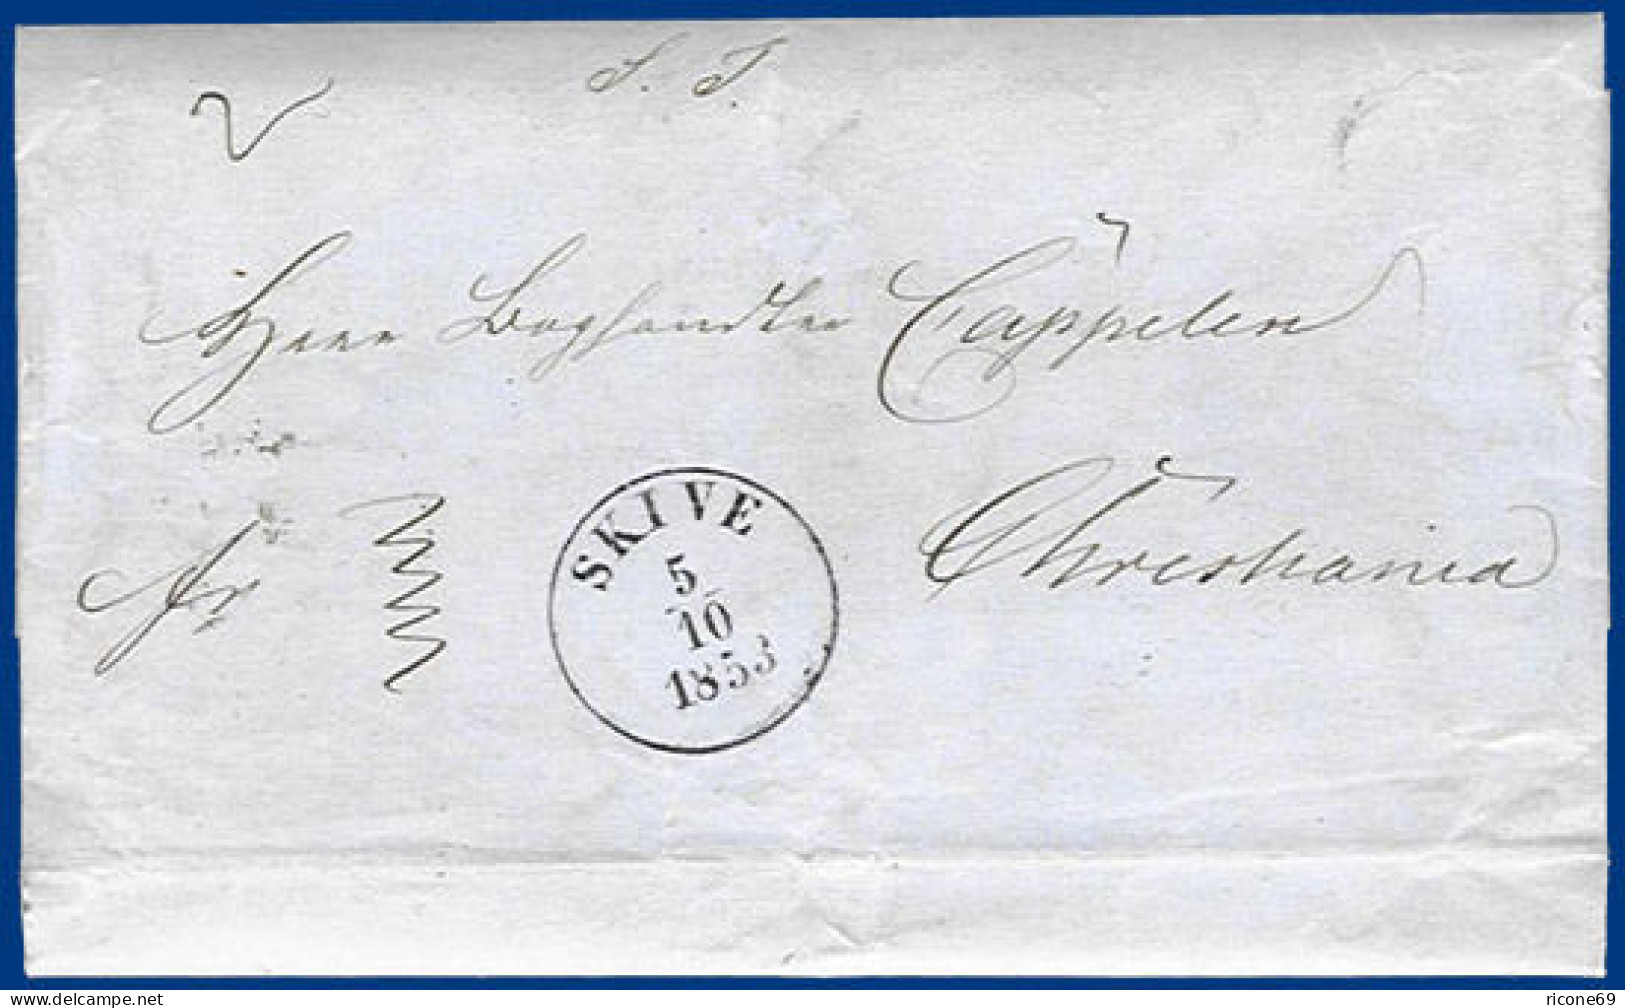 S. T.
Herr Boghandler Cappelen
Christiania
fr
SKIVE
5
10
1853
www.delcampe.net
ricone69